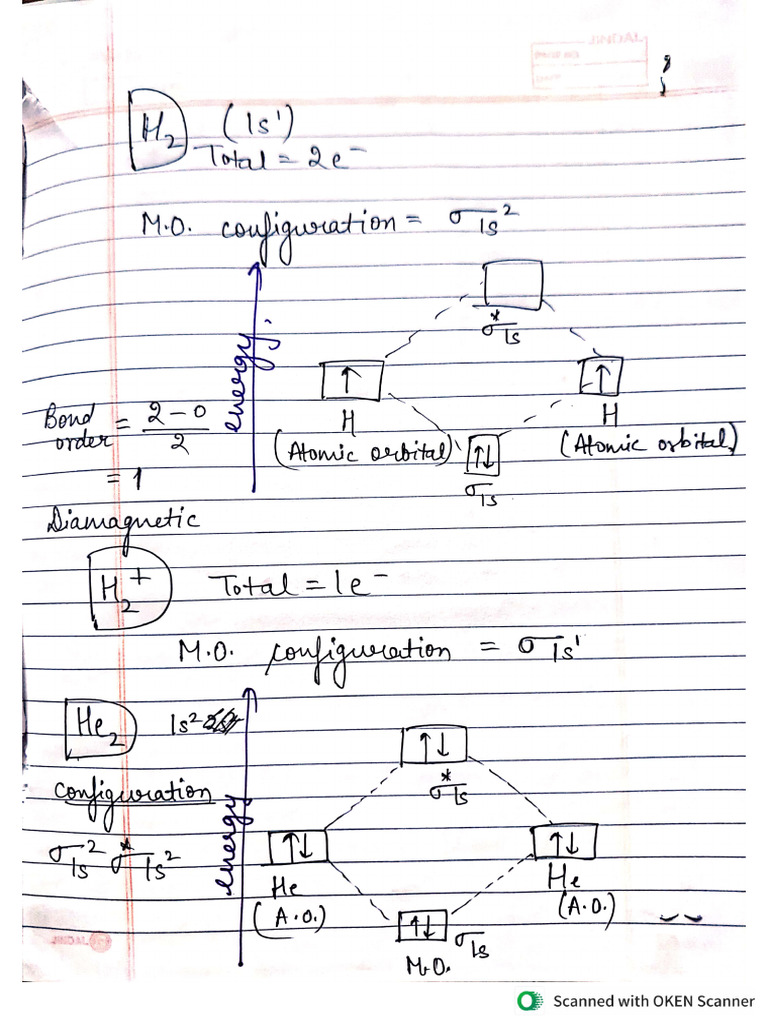 H₂ (1s¹)
Total = 2e⁻
M.O. configuration = σ1s²
energy
σ*1s
↑
↑
H
H
(Atomic orbital)
(Atomic orbital)
↑↓
σ1s
Bond order = (2-0)/2
= 1
Diamagnetic
H₂⁺ Total = 1e⁻
M.O. configuration = σ1s¹
He₂ 1s²
configuration
σ1s² σ*1s²
energy
↑↓
σ*1s
↑↓
↑↓
He
He
(A.O.)
(A.O.)
↑↓ σ1s
M.O.
Scanned with OKEN Scanner